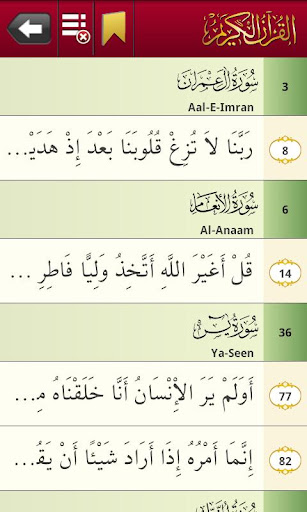 القرآن الكريم
سُورَةُ آلِ عِمْرَانَ
3
Aal-E-Imran
رَبَّنَا لاَ تُزِغْ قُلُوبَنَا بَعْدَ إِذْ هَدَيْ...
8
سُورَةُ الأَنْعَامِ
6
Al-Anaam
قُلْ أَغَيْرَ اللَّهِ أَتَّخِذُ وَلِيًّا فَاطِرِ ...
14
سُورَةُ يسٓ
36
Ya-Seen
أَوَلَمْ يَرَ الْإِنْسَانُ أَنَّا خَلَقْنَاهُ مِ...
77
إِنَّمَا أَمْرُهُ إِذَا أَرَادَ شَيْئًا أَنْ يَقُ...
82